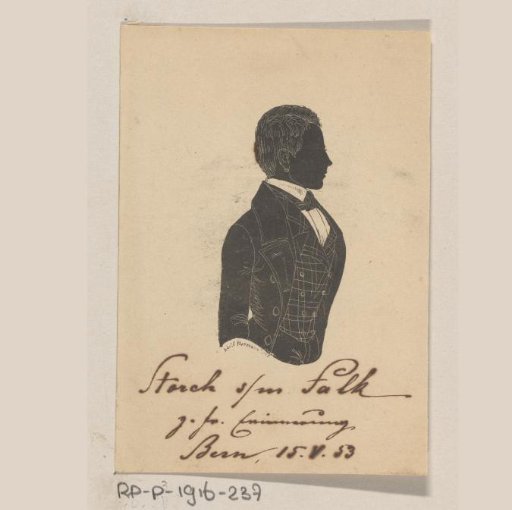 Storch s/m Falk
z. fr. Erinnerung
Bern, 15. V. 53
RP-P-1916-237